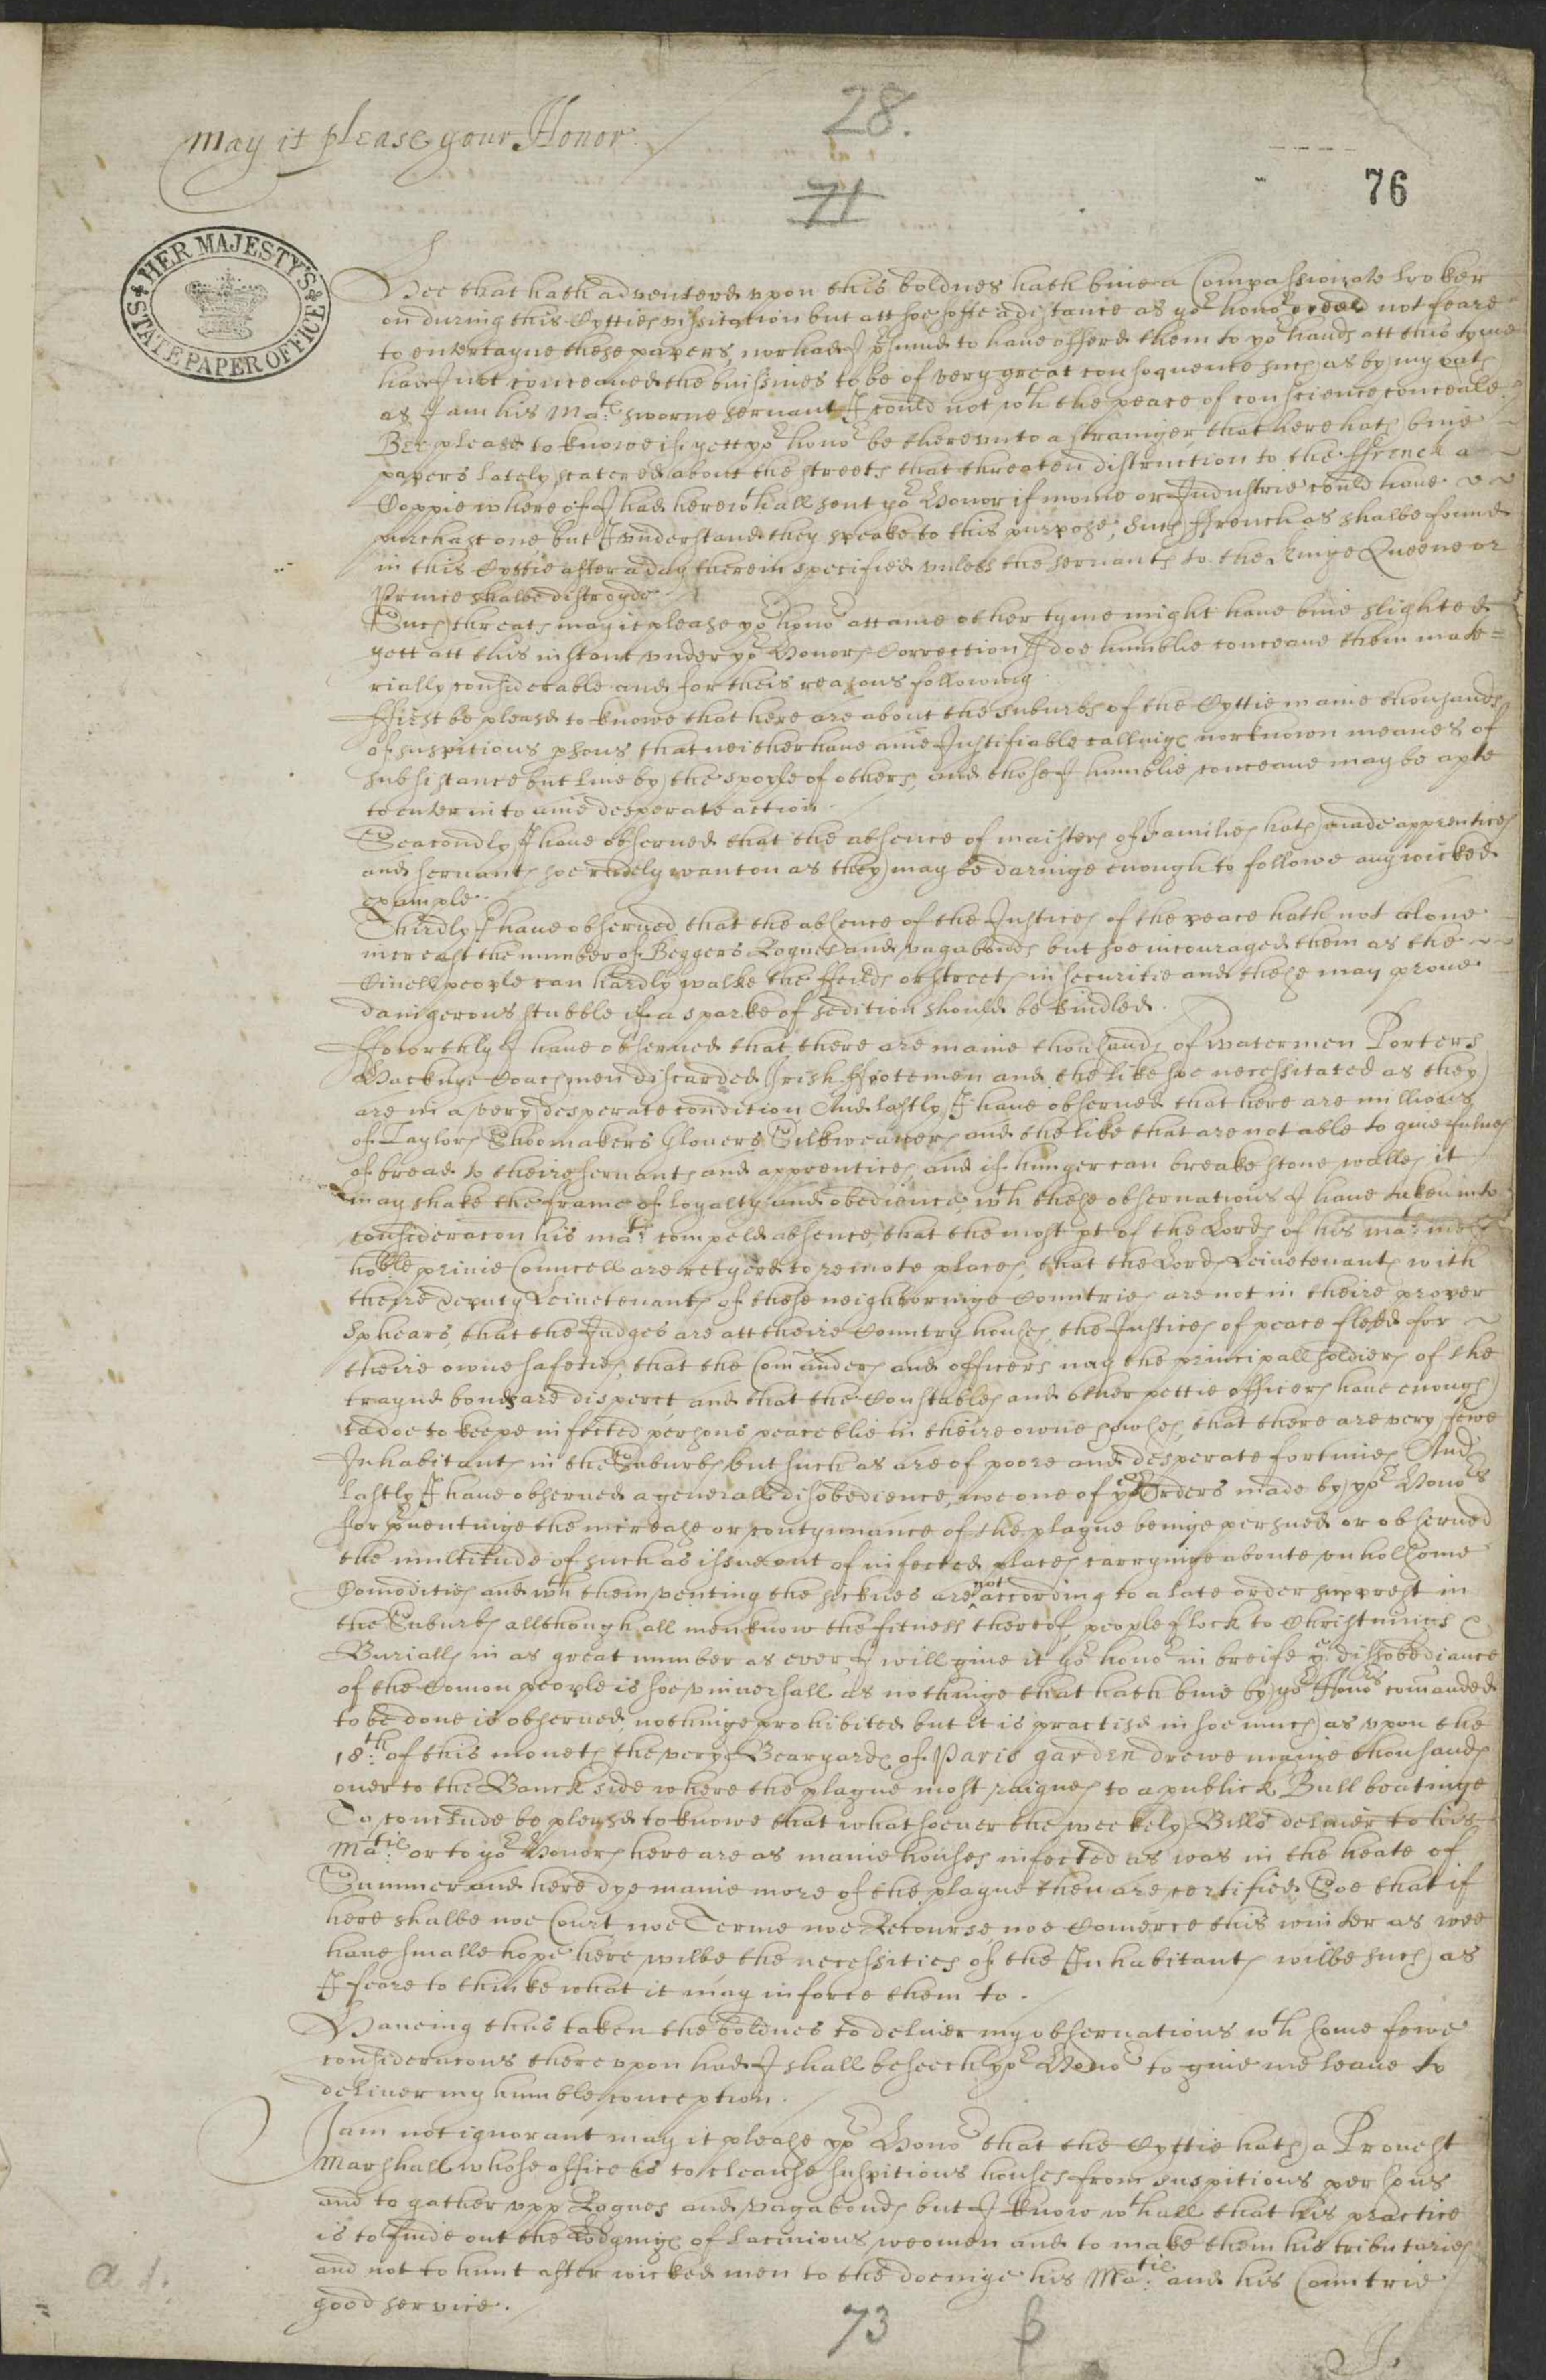 28.
may it please your Honor
76
71
HER MAJESTY'S STATE PAPER OFFICE
Hee that hath adventerd vpon this boldnes hath bine a Compassionate looker
on during this Cytties vissitation but att soe soffe a distance as yor honor need not feare
to entertayne these papers, nor had I psumd to haue offerd them to yor hands att this tyme
had I not conceaued the buissines to be of very great consequence such as by my oath
as I am his Matis sworne servant I could not wth the peace of conscience conceale.
Bee please to knowe if yett yor honor be therevnto a strainger that here hath bine
papers lately scatered about the streets that threaten distruction to the ffrench a
Coppie whereof I had herewthall sent yor Honor if monie or Industrie could haue
purchast one but I vnderstand they speake to this purpose, Such ffrench as shalbe found
in this Cyttie after a day therein specified vnless the servants to the Kinge Queene or
Prince shalbe distroyde
Such threats may it please yor honor att anie other tyme might haue bine slighted
yett att this instant vnder yor Honors Correction I doe humblie conceaue them mate=
rially considerable and for theis reasons following
ffirst be pleasd to knowe that here are about the suburbs of the Cyttie manie thousands
of suspitious psons that neither haue anie Justifiable callings nor known meanes of
subsistance but liue by the spoyle of others, and those I humblie conceaue may be apte
to enter into anie desperate action
Seacondly I haue obserued that the absence of maisters of Families hath made apprentices
and servants soe rudely wanton as they may be daringe enough to followe any wicked
example.
Thirdly I haue obserued that the absence of the Justices of the peace hath not alone
increast the number of Beggers Rogues and vagabonds but soe incouraged them as the
Ciuell people can hardly walke the ffeilds or streets in securitie and these may proue
daingerous stubble if a sparke of sedition should be kindled.
ffoworthly I haue obserued that there are manie thousands of watermen Porters
Hacknye Coachmen discarded Irish ffootemen and the like soe necessitated as they
are in a very desperate condition And lastly I haue obserued that here are millions
of Taylors Shoomakers Glouers Silkweauers and the like that are not able to giue fulnes
of bread to theire servants and apprentices and if hunger can breake stone walles it
may shake the frame of loyalty and obedience, wth these obseruations I haue taken into
consideracon his matis compeld absence, that the most pt of the Lords of his matis most
hoble priuie Councell are retyerd to remote places, that the Lords Leiuetenants with
theire deputy Leiuetenants of these neighboringe Countries are not in theire proper
Sphears, that the Judges are att theire Country houses, the Justices of peace fledd for
theire owne safeties, that the Comanders and officers nay the principall soldiers of the
traynd bonds are disperct, and that the Constables and other pettie officers haue enough
to doe to keepe infected persons peaceblie in theire owne howses, that there are very fewe
Inhabitants in the Suburbs but such as are of poore and desperate fortunes And
lastly I haue obserued a generall disobedience, noe one of ye Orders made by yor Honors
for preuentinge the increase or contynuance of the plague beinge persued or obserued
the multitude of such as issue out of infected places carryinge aboute vnholsome
Comodities and wth them venting the sicknes are not according to a late order supprest in
the Suburbs allthough all men know the fitness thereof, people flock to Christnings &
Burialls in as great number as ever, I will giue it yor honor in breife ye dissobediance
of the Comon people is soe vniuersall as nothinge that hath bine by yor Honors comanded
to be done is obserued, nothinge prohibited but it is practisd in soe much as vpon the
18th of this moneth the very Beargarde of Paris garden drewe manie thousands
ouer to the Banck side where the plague most raignes to a publick Bull beatinge
To conclude be pleasd to knowe that whatsoeuer the weekely Bills deliuer to his
Matie or to yor Honors here are as manie houses infected as was in the heate of
Summer and here dye manie more of the plague then are certified. Soe that if
here shalbe noe Court noe Terme noe Recourse noe Comerce this winter as wee
haue smalle hope here wilbe the necessities of the Inhabitants wilbe such as
I feare to thinke what it may inforce them to.
Haueing thus taken the boldnes to deliuer my obseruations wth some fewe
consideracons therevpon had I shall beseech yor Honor to giue me leaue to
deliuer my humble conception.
I am not ignorant may it please yor Honor that the Cyttie hath a Prouest
Marshall whose office is to cleanse suspitious houses from suspitious persons
and to gather vpp Rogues and vagabonds but I know wthall that his practice
is to finde out the Lodgings of laciuious weomen and to make them his tributaries
and not to hunt after wicked men to the doeinge his Matie and his Countrie
good service.
73
I